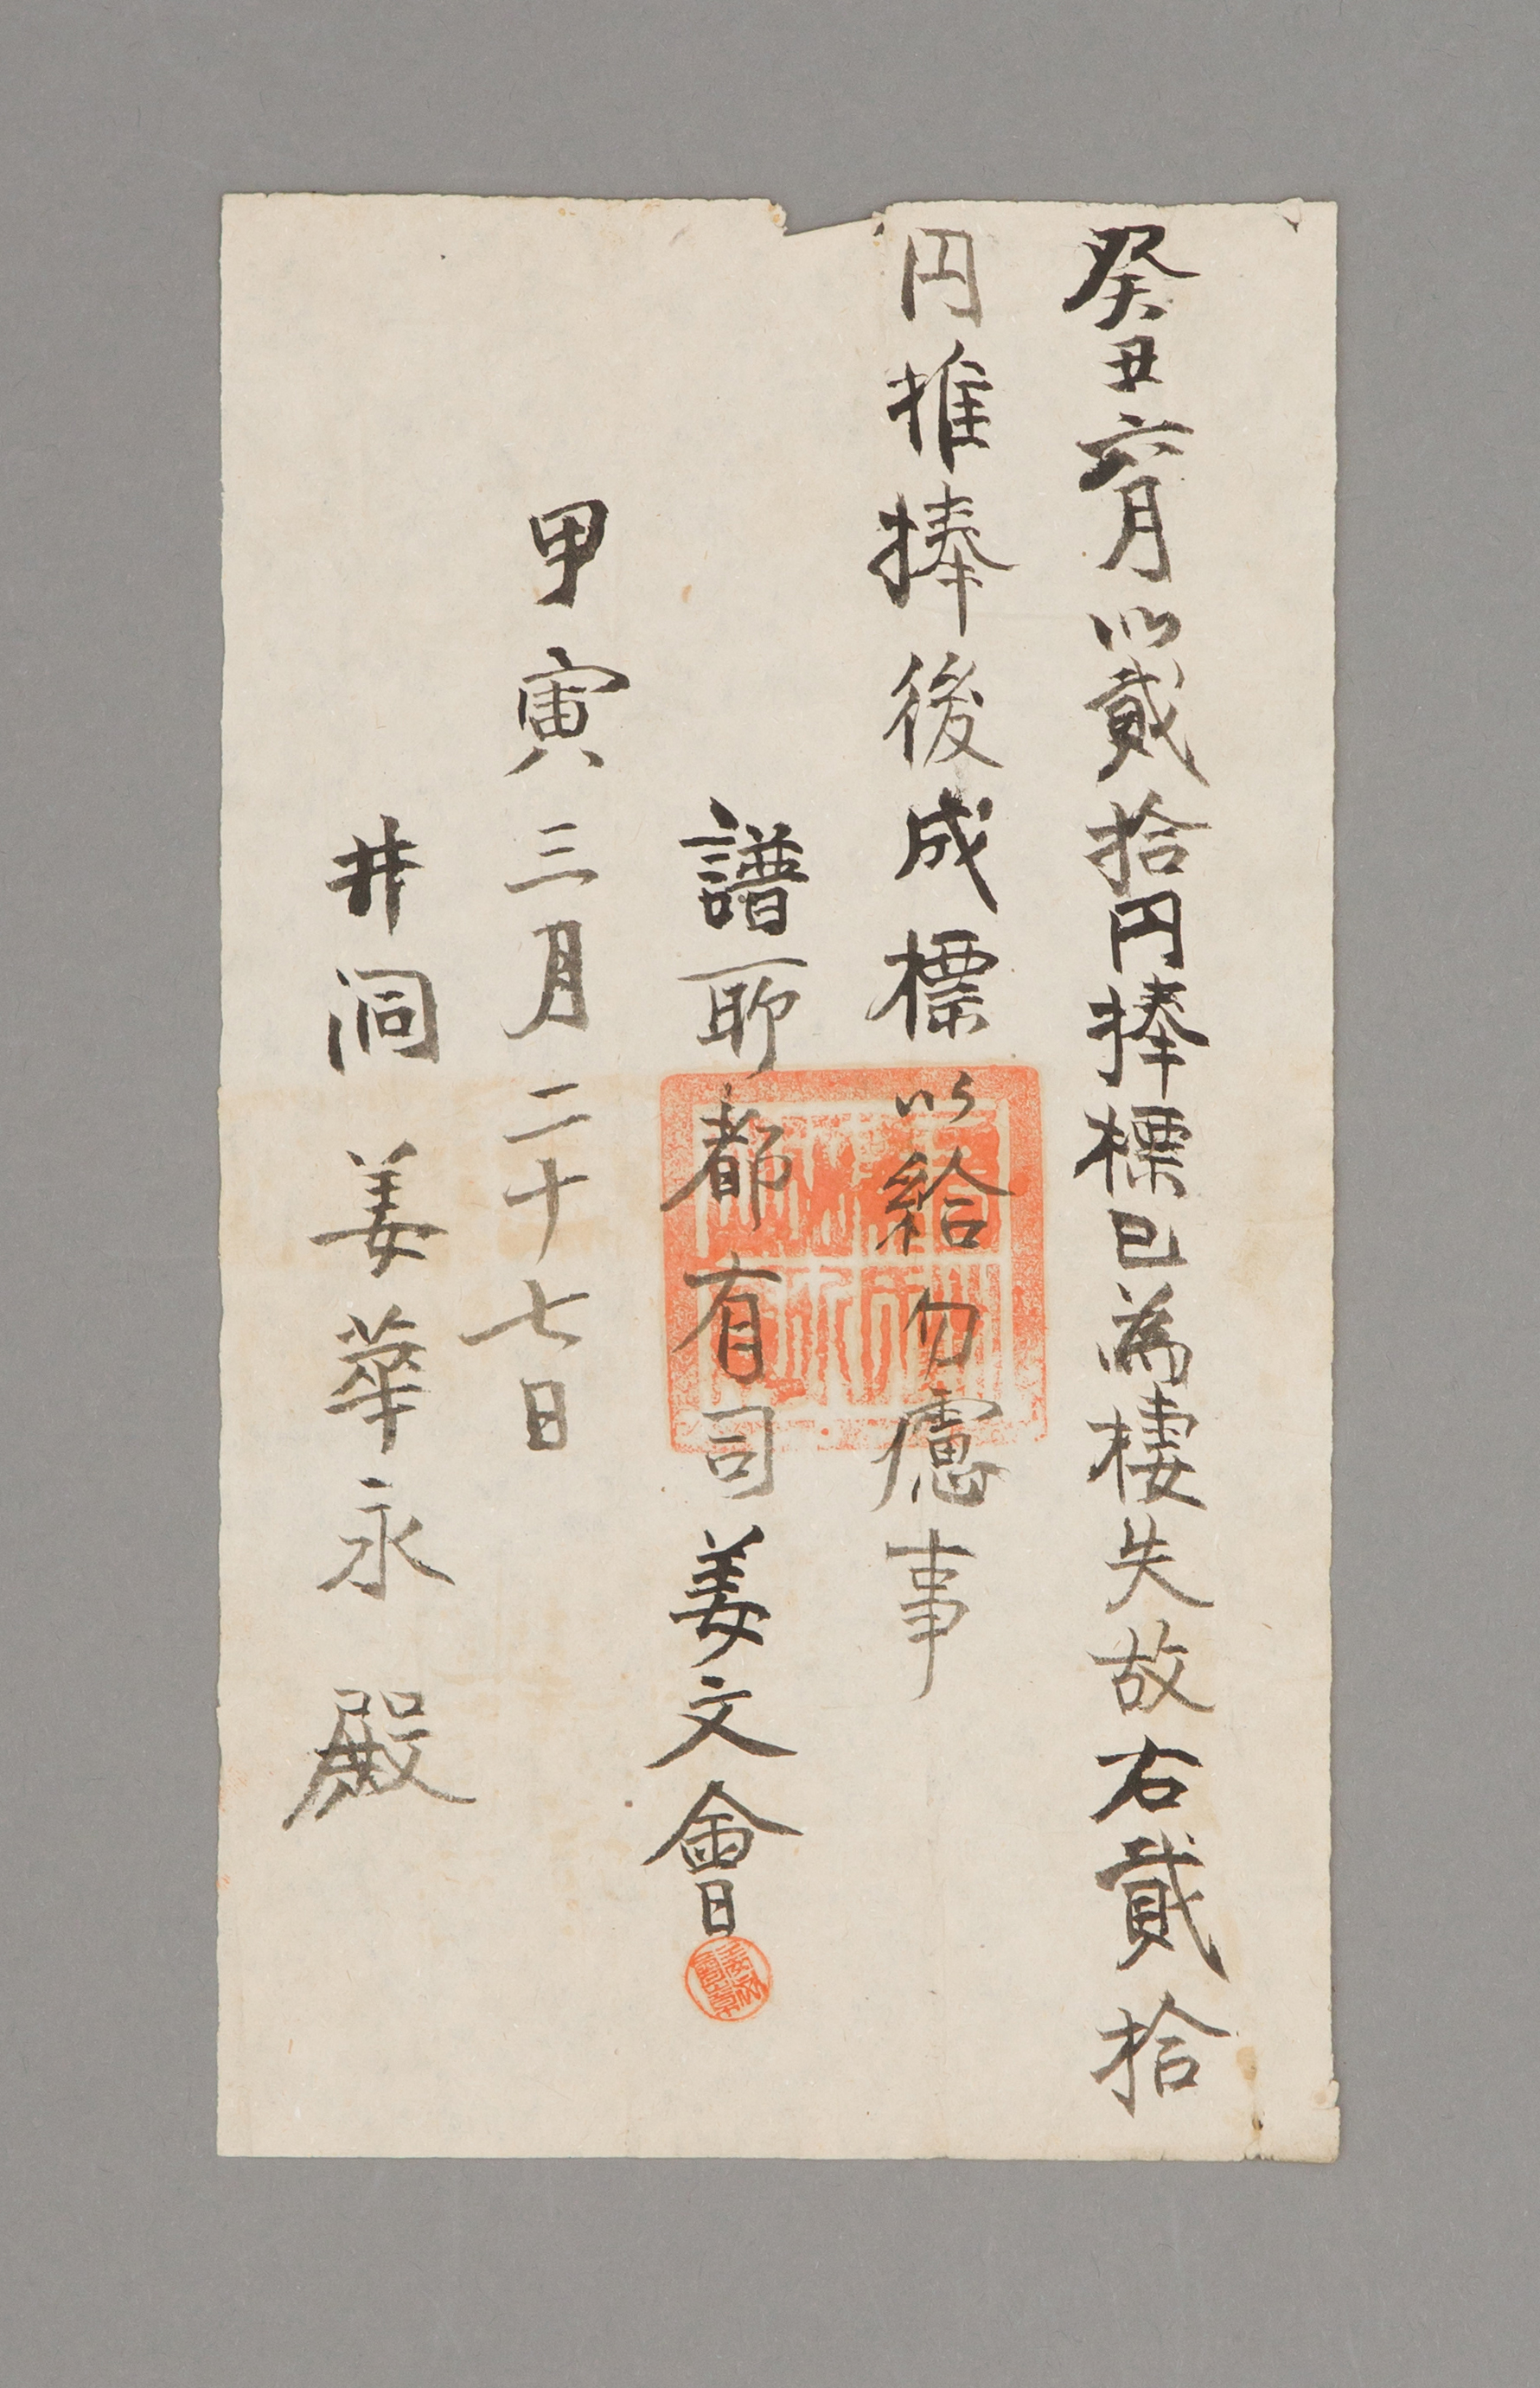 癸丑六月以貳拾円捧標已為棲失故右貳拾
円推捧後成標以給勿慮事
譜所都有司姜文會
甲寅三月二十七日
井洞 姜華永 殿